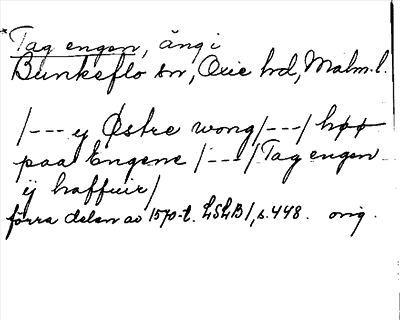 * Tag engen, äng i
Bunkeflo sn, Oxie hd, Malm. l.
/--- y Østre wong/---/ høø
paa Engene /---/ Tag engen
ÿ haffuir/
förra delen av 1570-t. LSLB 1, s. 448. orig.